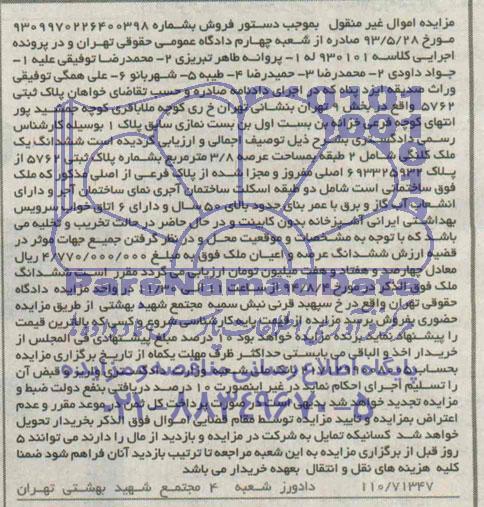 مزایده اموال غیر منقول بموجب دستور فروش بشماره ۹۳۰۹۹۷۰۲۲۶۴۰۰۳۹۸
مورخ ۹۳/۵/۲۸ صادره از شعبه چهارم دادگاه عمومی حقوقی تهران و در پرونده
اجرایی کلاسه ۹۳۰۱۰۱ له ۱- پروانه طاهر تبریزی ۲- محمدرضا توفیقی علیه ۱-
جواد داودی ۲- محمدرضا ۳- حمیدرضا ۴- طیبه ۵- شهربانو ۶- علی همگی توفیقی
وراث صدیقه ایزد پناه که در اجرای دادنامه صادره و حسب تقاضای خواهان پلاک ثبتی
۵۷۶۲ واقع در بخش ۹ تهران بنشانی تهران خ ری کوچه ملاباقری کوچه پور
انتهای کوچه فرعی خزانه بن بست اول بن بست نمازی سابق پلاک ۱ بوسیله کارشناس
رسمی دادگستری بشرح ذیل توصیف اجمالی و ارزیابی گردیده است ششدانگ یک
ملک کلنگی شامل ۲ طبقه بمساحت عرصه ۳/۸ مترمربع بشماره پلاک ثبتی ۵۷۶۲ از
پلاک ۶۹۳۳۲۵۹۳۲ اصلی مفروز و مجزا شده از پلاک فرعی از اصلی مذکور که ملک
فوق ساختمانی است شامل دو طبقه اسکلت ساختمان آجری نمای ساختمان آجر و دارای
انشعاب آب گاز و برق با عمر بنای حدود بالای ۵۰ سال و دارای ۶ اتاق خواب سرویس
بهداشتی ایرانی آشپزخانه بدون کابینت و در حال حاضر در حالت تخریب و تخلیه می
باشد که با توجه به مشخصات و موقعیت محل و در نظر گرفتن جمیع جهات موثر در
قضیه ارزش ششدانگ عرصه و اعیان ملک فوق به مبلغ ۴/۷۷۰/۰۰۰/۰۰۰ ریال
معادل چهارصد و هفتاد و هفت میلیون تومان ارزیابی می گردد مقرر است ششدانگ
ملک فوق الذکر در مورخ ۹۴/۸/۴ از ساعت ۱۱ الی ۱۱/۳۰ در واحد مزایده دادگاه
حقوقی تهران واقع در خ سپهبد قرنی نبش سمیه مجتمع شهید بهشتی از طریق مزایده
حضوری بفروش برسد مزایده از قیمت پایه کارشناسی شروع و کسی که بالاترین قیمت
را پیشنهاد نماید برنده مزایده خواهد بود ۱۰ درصد مبلغ پیشنهادی فی المجلس از
خریدار اخذ و الباقی می بایستی حداکثر ظرف مهلت یکماه از تاریخ برگزاری مزایده
بحساب واریز و قبض آن
را تسلیم اجرای احکام نماید در غیر اینصورت ۱۰ درصد دریافتی بنفع دولت ضبط و
مزایده تجدید خواهد شد بدیهی است در صورت پرداخت کل ثمن در موعد مقرر و عدم
اعتراض بمزایده و تایید مزایده توسط مقام قضایی اموال فوق الذکر بخریدار تحویل
خواهد شد کسانیکه تمایل به شرکت در مزایده و بازدید از مال را دارند می توانند ۵
روز قبل از برگزاری مزایده به این شعبه مراجعه تا ترتیب بازدید آنان فراهم شود ضمنا
کلیه هزینه های نقل و انتقال بعهده خریدار می باشد
۱۱۰/۷۱۳۴۷ دادورز شعبه ۴ مجتمع شهید بهشتی تهران
پایگاه اطلاع رسانی مناقصه و مزایده
۰۲۱-۸۸۳۴۹۶۷۰-۵